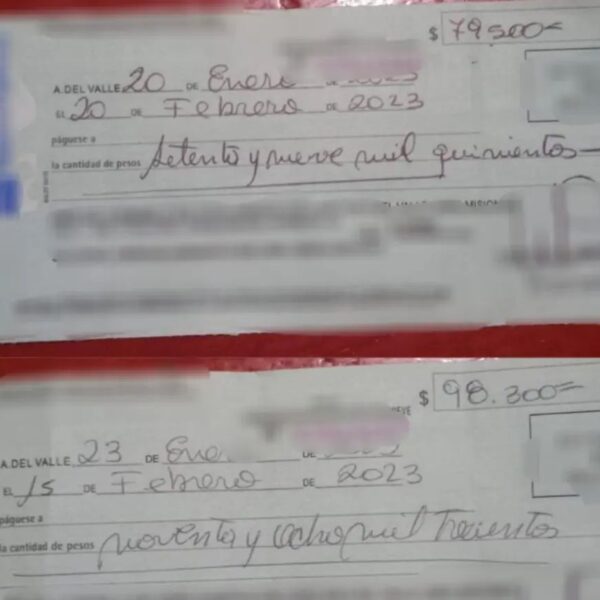 $ 79.500=
A. DEL VALLE 20 DE Enero
EL 20 DE Febrero DE 2023
páguese a
la cantidad de pesos setenta y nueve mil quinientos—
$ 98.300=
A. DEL VALLE 23 DE Ene
EL 15 DE Febrero DE 2023
páguese a
la cantidad de pesos noventa y ocho mil trecientos